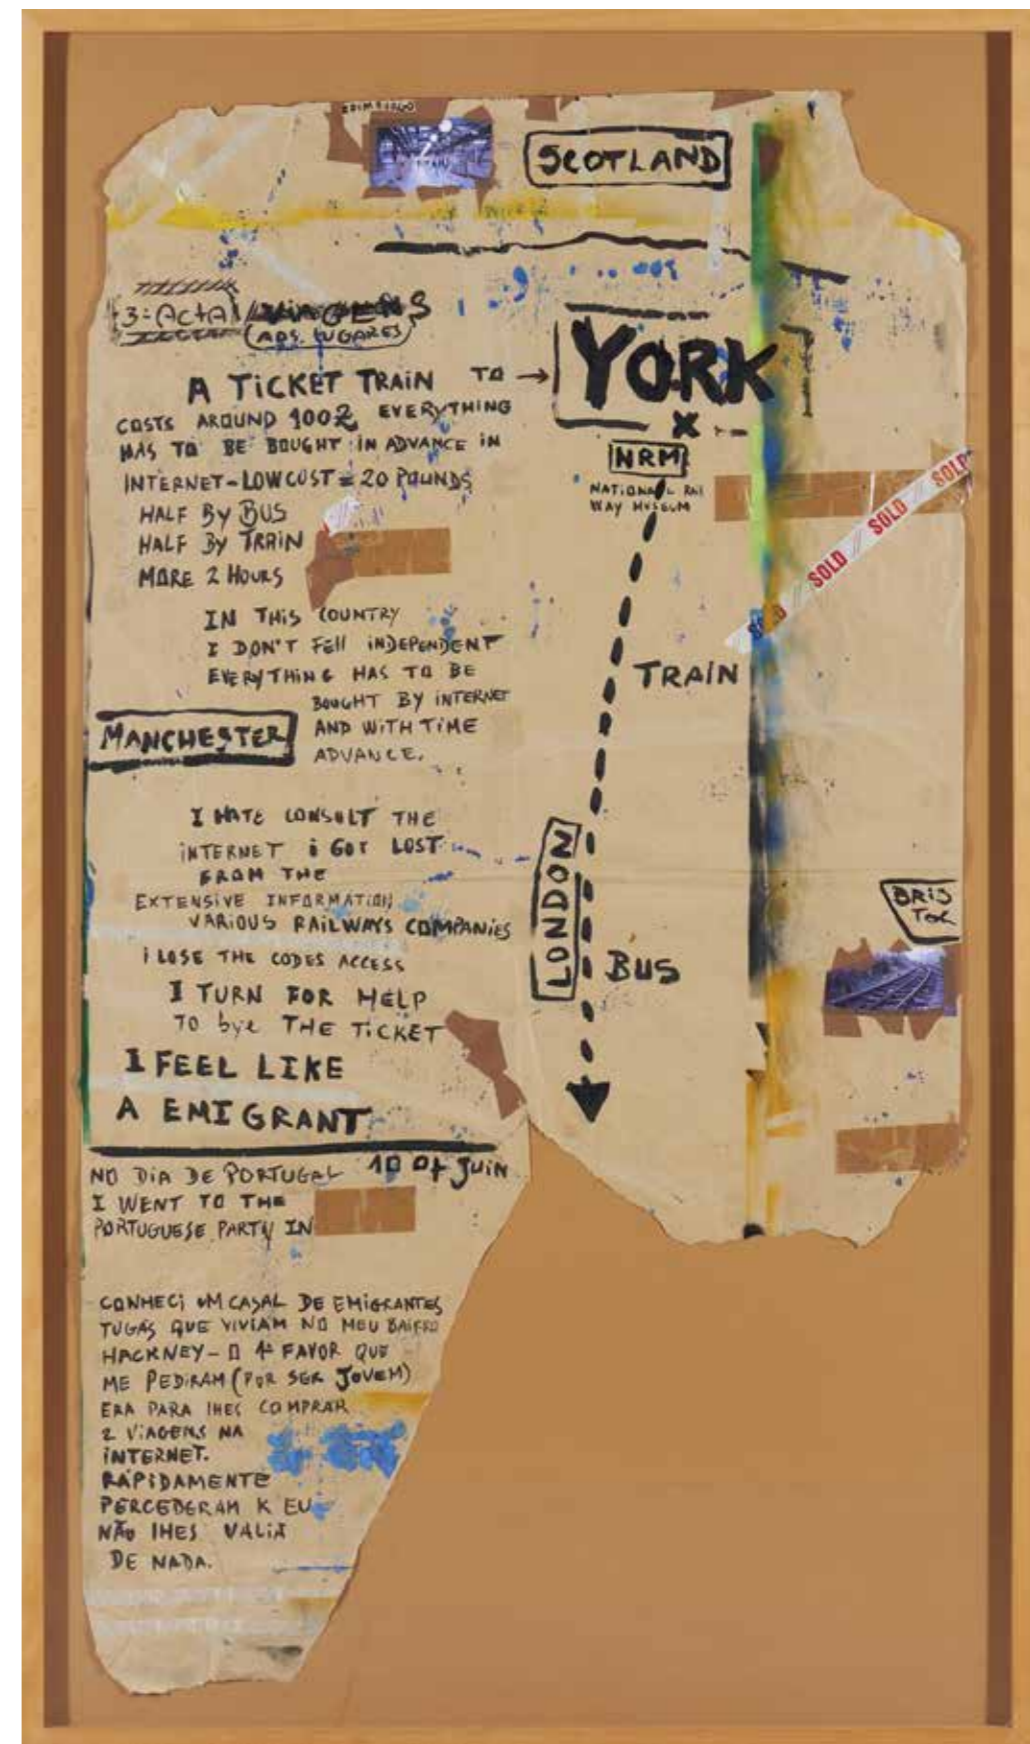 EDIMBURGO
SCOTLAND
3º ActA / VIAGENS
(AOS LUGARES)
A TiCKET TRAiN TO →
YORK
X
COSTS AROUND 100£ EVERYTHING
HAS TO BE BOUGHT IN ADVANCE IN
INTERNET - LOWCOST = 20 POUNDS
HALF BY BUS
HALF BY TRAIN
MORE 2 HOURS
NRM
NATIONAL RAI
WAY MUSEUM
SOLD // SOLD // SOLD
SOLD
IN THiS COUNTRY
I DON'T FEll INDEPENDENT
EVERYTHING HAS TO BE
BOUGHT BY INTERNET
AND WiTH TiME
ADVANCE.
TRAIN
MANCHESTER
I HATE CONSULT THE
iNTERNET i GOT LOST
FROM THE
EXTENSIVE INFORMATION
VARIOUS RAILWAYS COMPANiES
i LOSE THE CODES ACCESS
I TURN FOR HELP
TO bye THE TiCKET
I FEEL LIKE
A EMIGRANT
LONDON
BUS
BRIS
TOL
NO DiA DE PORTUGAL 10 Of JUiN
I WENT TO THE
PORTUGUESE PARTY IN
CONHECi UM CASAL DE EMiGRANTES
TUGAS QUE VIVIAM NO MEU BAIRRO
HACKNEY - O 1º FAVOR QUE
ME PEDIRAM (POR SER JOVEM)
ERA PARA lHES COMPRAR
2 ViAGENS NA
iNTERNET.
RÁPiDAMENTE
PERCEBERAM K EU
NÃO lHES VALIA
DE NADA.